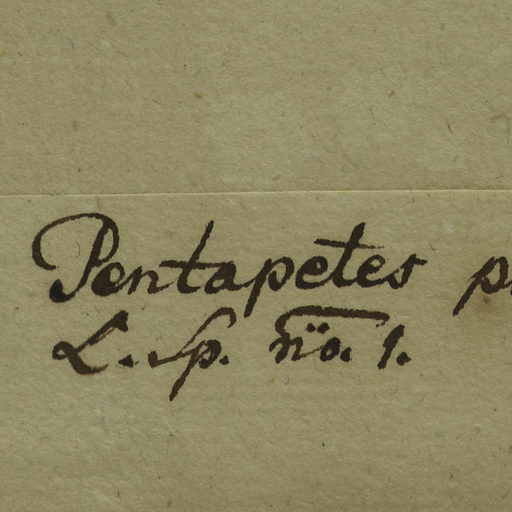 Pentapetes p
L. Sp. no. 1.